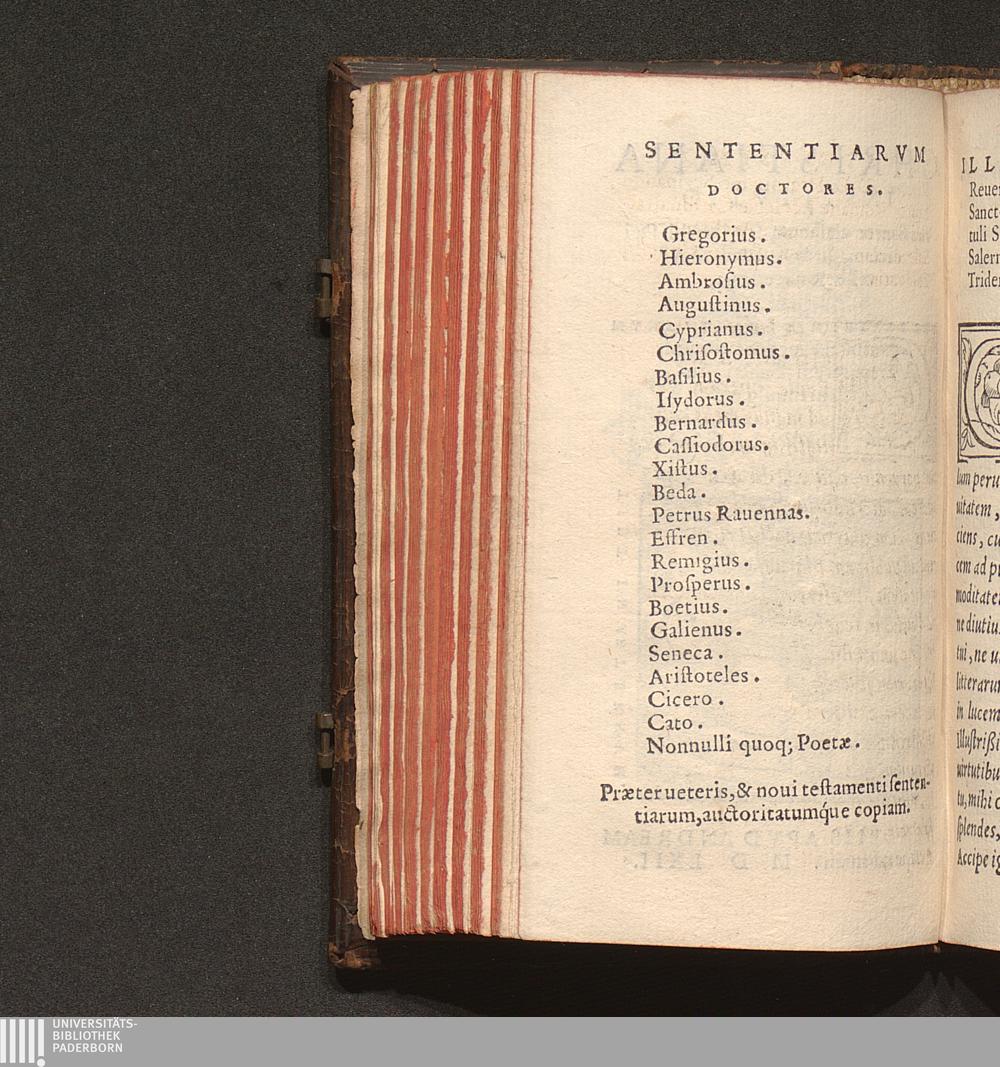 SENTENTIARVM
DOCTORES.
Gregorius.
Hieronymus.
Ambroſius.
Auguſtinus.
Cyprianus.
Chriſoſtomus.
Baſilius.
Iſydorus.
Bernardus.
Caſſiodorus.
Xiſtus.
Beda.
Petrus Rauennas.
Effren.
Remigius.
Proſperus.
Boetius.
Galienus.
Seneca.
Ariſtoteles.
Cicero.
Cato.
Nonnulli quoq; Poetæ.
Præter ueteris, & noui teſtamenti ſenten-
tiarum, auctoritatumq́ue copiam.
ILL
Reue
Sanct
tuli S
Saler
Tride
lum peru
uitatem,
ciens, cu
cem ad p
moditate
ne diutiu
tui, ne u
litteraru
in lucem
Illuſtriſſi
uirtutibu
tu, mihi c
ſplendes,
Accipe ig
UNIVERSITÄTS-
BIBLIOTHEK
PADERBORN